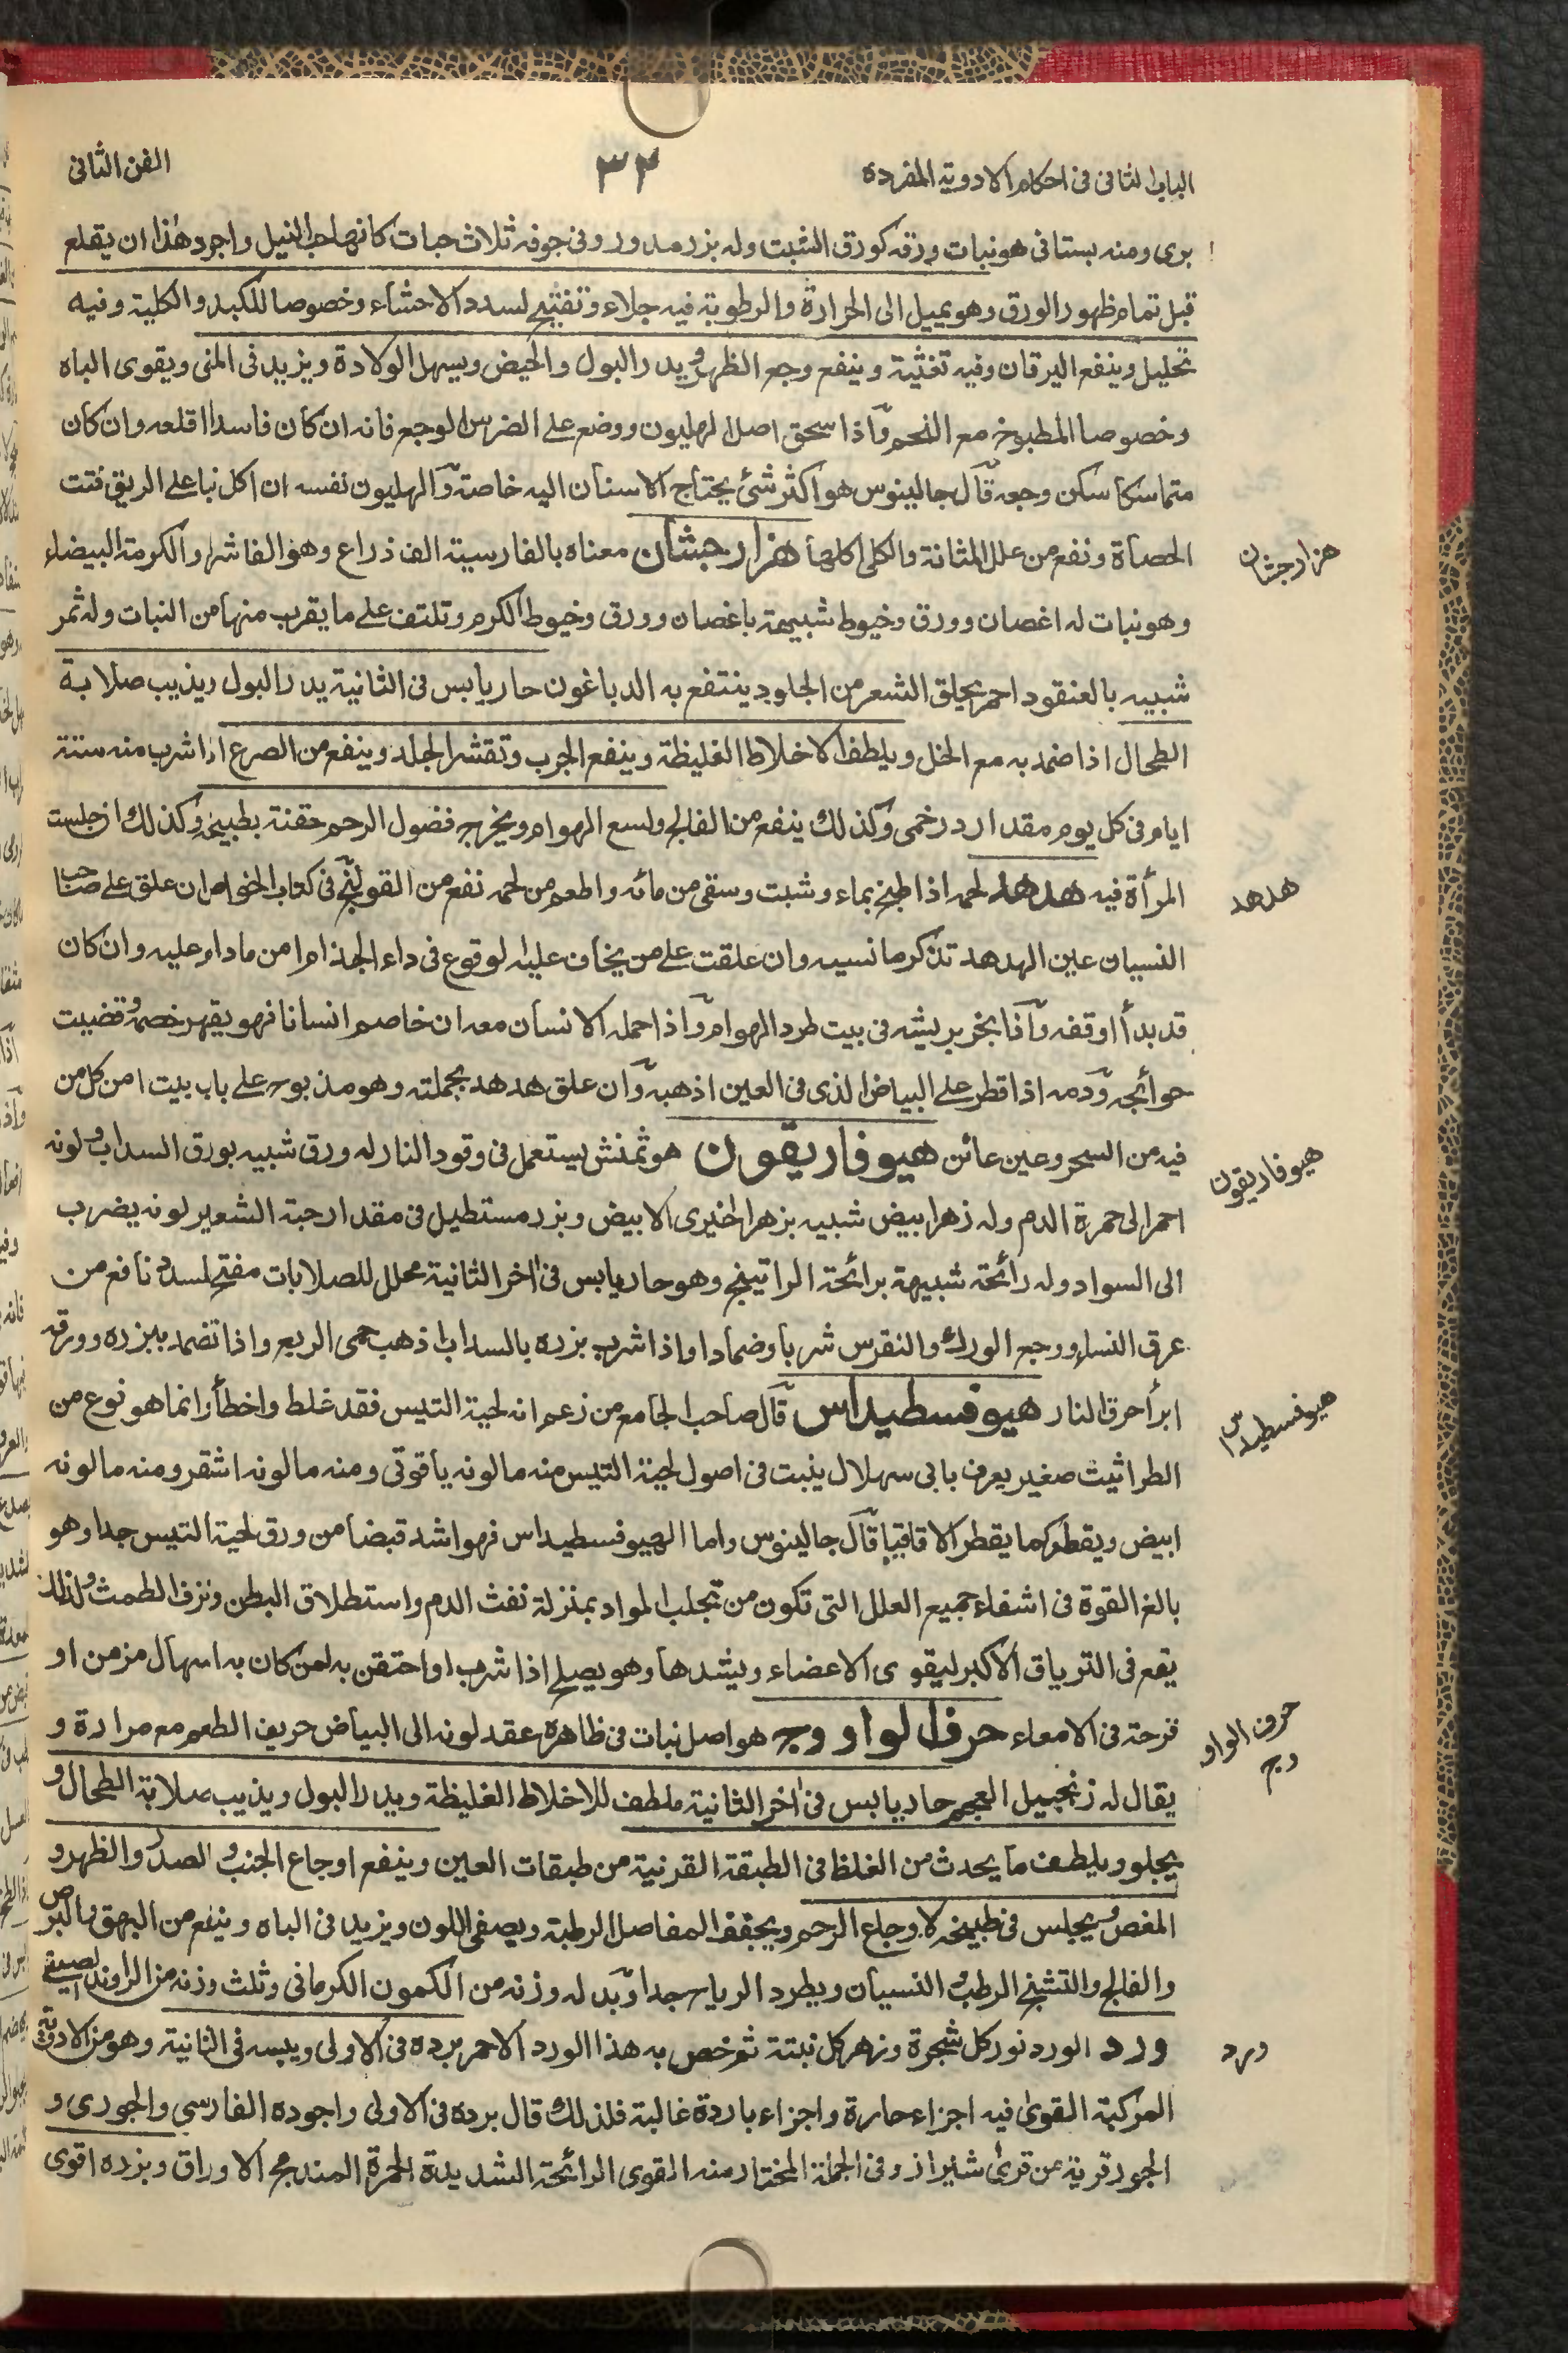 الباب الثانى فى احكام الادوية المفردة
٣٢
الفن الثانى
برى ومنه بستانى هو نبات ورقه كورق الشبت وله بزر مدور وفى جوفه ثلاث حبات كانها حب النيل واجود هذا ان يقلع
قبل تمام ظهور الورق وهو يميل الى الحرارة والرطوبة فيه جلاء وتفتيح لسدد الاحشاء وخصوصا للكبد والكلية وفيه
تحليل وينفع اليرقان وفيه تغثية وينفع وجع الظهر ويدر البول والحيض ويسهل الولادة ويزيد فى المنى ويقوى الباه
وخصوصا المطبوخة مع اللحم واذا سحق اصل الهليون ووضع على الضرس الوجع فانه ان كان فاسدا اقلعه وان كان
متماسكا سكن وجعه قال جالينوس هو اكثر شئ يحتاج الاسنان اليه خاصة والهليون نفسه ان اكل نيا على الريق فتت
الحصاة ونفع من علل المثانة والكلى اكلها هزار جشان معناه بالفارسية الف ذراع وهو الفاشرا والكرمة البيضاء
هزار جشان
وهو نبات له اغصان وورق وخيوط شبيهة باغصان وورق وخيوط الكرم وتلتف على ما يقرب منها من النبات وله ثمر
شبيه بالعنقود احمر يحلق الشعر من الجلود ينتفع به الدباغون حار يابس فى الثانية يدر البول ويذيب صلابة
الطحال اذا ضمد به مع الخل ويلطف الاخلاط الغليظة وينفع الجرب وتقشر الجلد وينفع من الصرع اذا شرب منه ستة
ايام فى كل يوم مقدار درخمى وكذلك ينفع من الفالج ولسع الهوام ويخرج فضول الرحم حقنة بطبيخه وكذلك ان جلست
المرأة فيه هدهد لحمه اذا طبخ بماء وشبت وسقى من مائه واطعم من لحمه نفع من القولنج فى كتاب الخواص ان علق على صاحب
هدهد
النسيان عين الهدهد تذكر ما نسيه وان علقت على من يخاف عليه الوقوع فى داء الجذام امن ما دام عليه وان كان
قد بدأ اوقفه واذا بخر بريشه فى بيت طرد الهوام واذا حمله الانسان معه ان خاصم انسانا فهو يقهر خصمه وقضيت
حوائجه ودمه اذا قطر على البياض الذى فى العين اذهبه وان علق هدهد بجملته وهو مذبوح على باب بيت امن كل من
فيه من السحر وعين عائن هيوفاريقون هو ثمنش يستعمل فى وقود النار له ورق شبيه بورق السداب ولونه
هيوفاريقون
احمر الى حمرة الدم وله زهر ابيض شبيه بزهر الخيرى الابيض وبزر مستطيل فى مقدار حبة الشعير لونه يضرب
الى السواد وله رائحة شبيهة برائحة الراتينج وهو حار يابس فى اخر الثانية محلل للصلابات مفتح لسدد نافع من
عرق النساء ووجع الورك والنقرس شربا وضمادا واذا شرب بزره بالسداب اذهب حمى الربع واذا تضمد ببزره وورقه
ابرأ حرق النار هيوفسطيداس قال صاحب الجامع من زعم انه لحية التيس فقد غلط واخطأ وانما هو نوع من
هيوفسطيداس
الطراثيث صغير يعرف بابى سهلال ينبت فى اصول لحية التيس منه ما لونه ياقوتى ومنه ما لونه اشقر ومنه ما لونه
ابيض ويقطر كما يقطر الاقاقيا قال جالينوس واما الهيوفسطيداس فهو اشد قبضا من ورق لحية التيس جدا وهو
بالغ القوة فى اشفاء جميع العلل التى تكون من تجلب المواد بمنزلة نفث الدم واستطلاق البطن ونزف الطمث ولذلك
يقع فى الترياق الاكبر ليقوى الاعضاء ويشدها وهو يصلح اذا شرب او احتقن به لمن كان به اسهال مزمن او
قرحة فى الامعاء حرف الواو وج هو اصل نبات فى ظاهره عقد لونه الى البياض حريف الطعم مع مرارة و
حرف الواو
وج
يقال له زنجبيل العجم حار يابس فى اخر الثانية ملطف للاخلاط الغليظة ويدر البول ويذيب صلابة الطحال و
يجلو ويلطف ما يحدث من الغلظ فى الطبقة القرنية من طبقات العين وينفع اوجاع الجنب والصدر والظهر و
المغص ويجلس فى طبيخه لاوجاع الرحم ويجفف المفاصل الرطبة ويصفى اللون ويزيد فى الباه وينفع من البهق والبرص
والفالج والتشنج الرطب والنسيان ويطرد الرياح جدا وبدله وزنه من الكمون الكرمانى وثلث وزنه من الراوند الصينى
ورد الورد نور كل شجرة وزهر كل نبتة ثم خص به هذا الورد الاحمر برده فى الاولى ويبسه فى الثانية وهو من الادوية
ورد
المركبة القوى فيه اجزاء حارة واجزاء باردة غالبة فلذلك قال برده فى الاولى واجوده الفارسى والجورى و
الجور قرية من قرى شيراز وفى الجملة المختار منه القوى الرائحة الشديدة الحمرة المندمج الاوراق وبزره اقوى